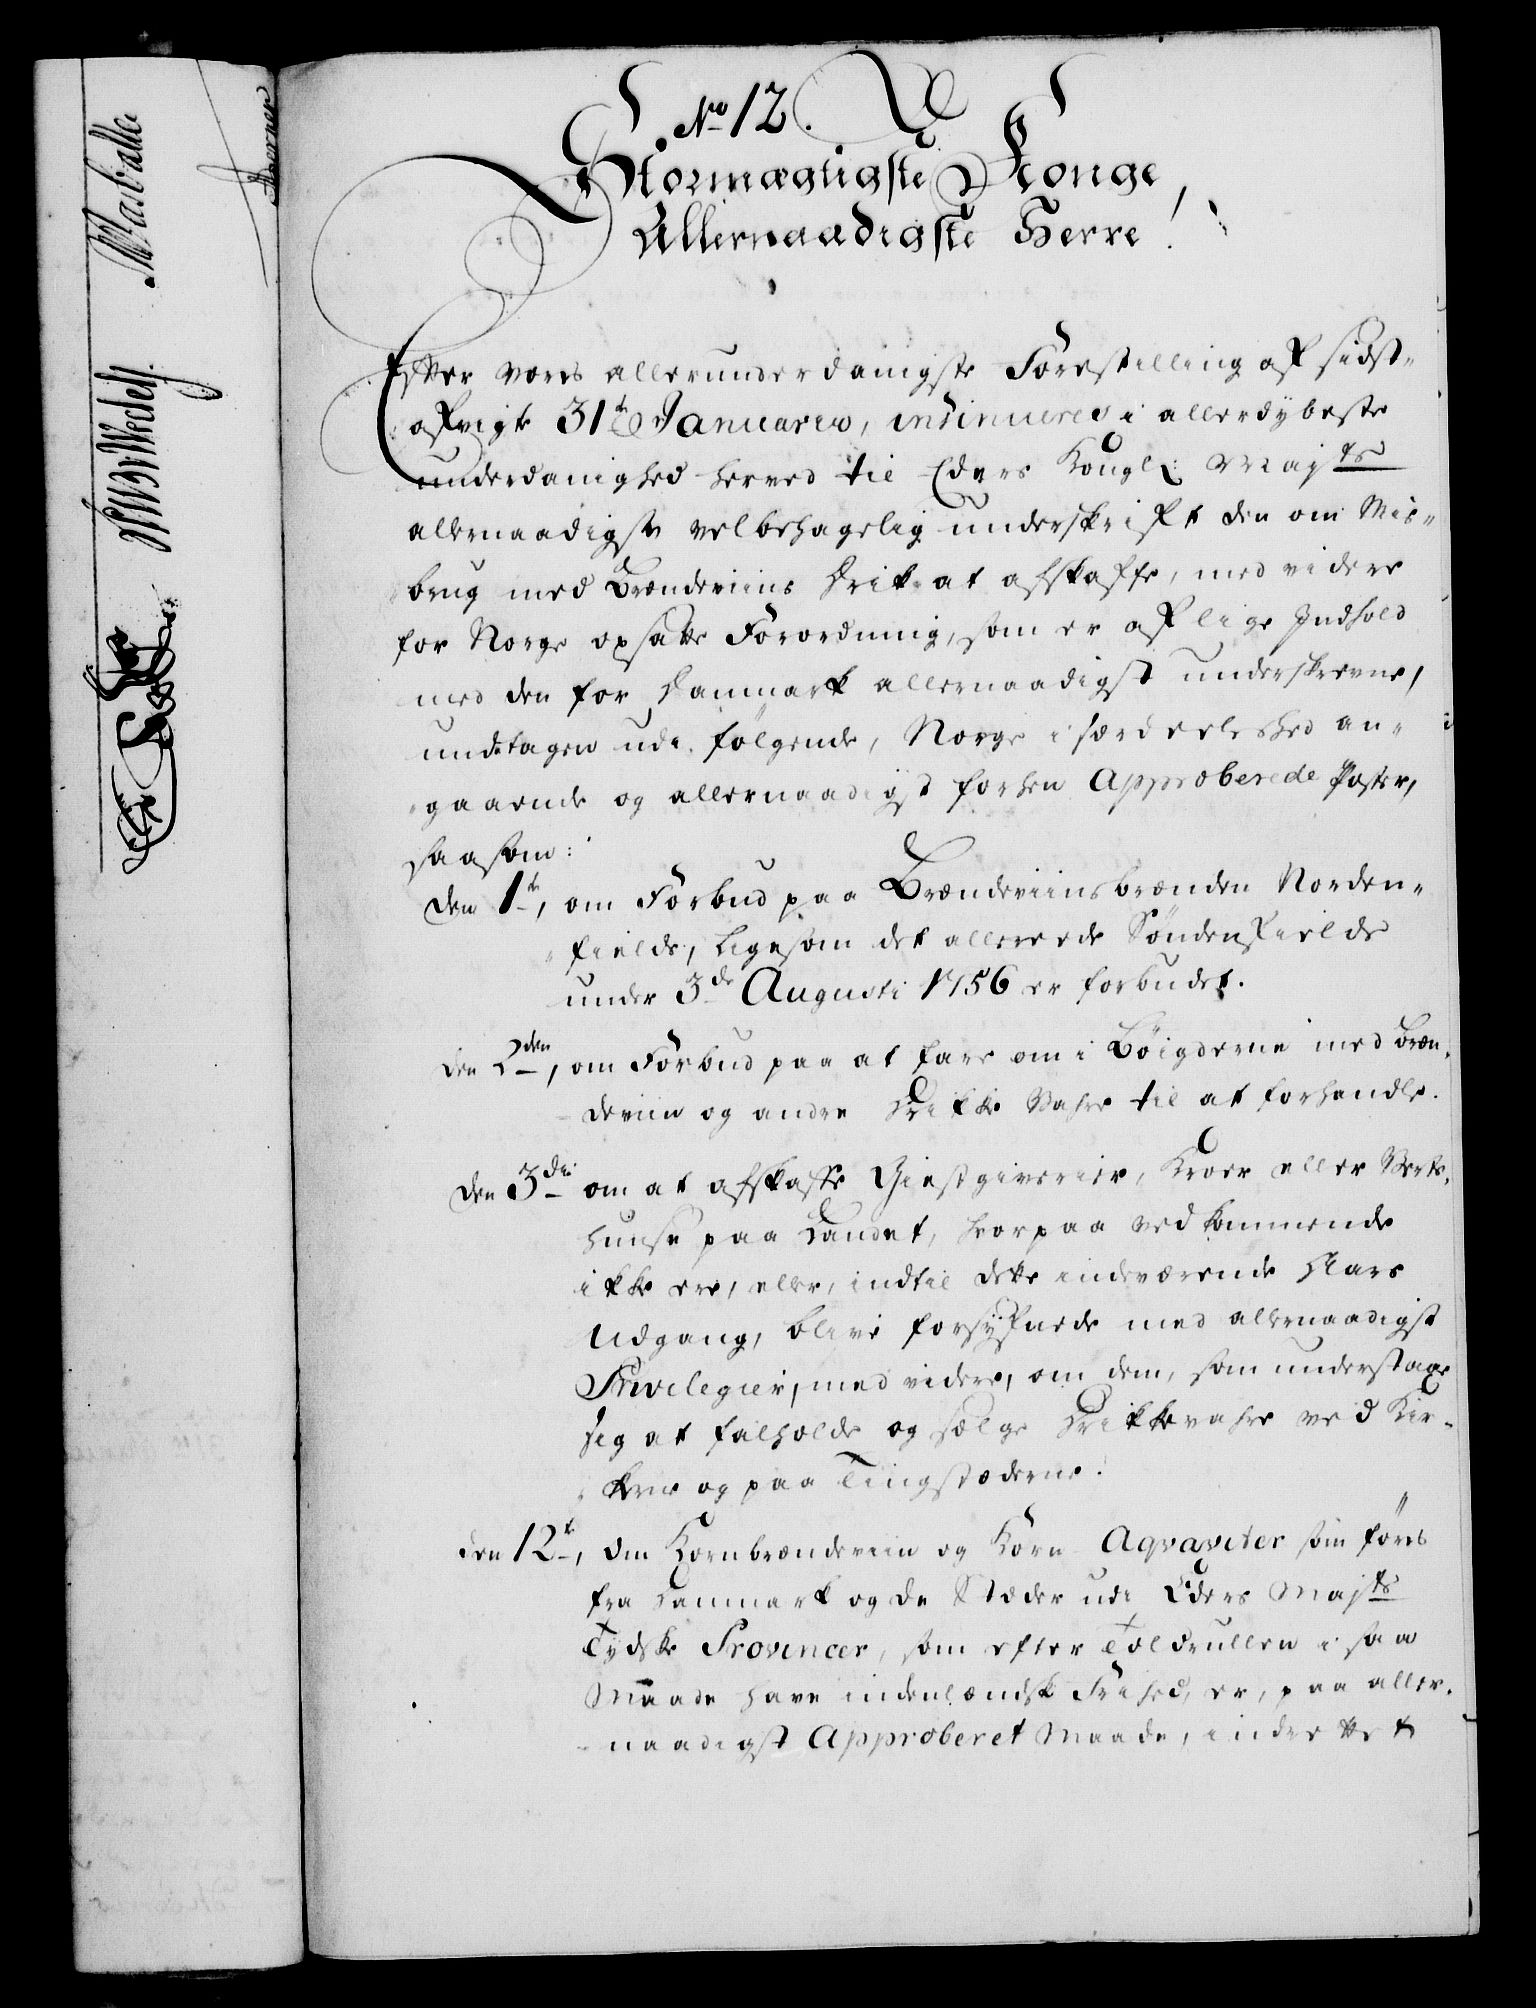 No 12.
Stormægtigste Konge,
Allernaadigste Herre!
Efter vores allerunderdanigste Forestilling af sidst-
afvigte 31te Januario, insinueres i allerdybeste
underdanighed herved til Eders Kongl: Majts
allernaadigste velbehagelig underskrift den om Mis-
brug med Brændeviins Drik at afskaffe, med videre
for Norge opsatte Forordning, som er af lige Indhold
med den for Danmark allernaadigst underskrevne,
undtagen udi følgende, Norge i særdeeleshed an-
gaaende og allernaadigst forhen Approberede Poster,
saasom:
den 1te, om Forbud paa Brændeviinsbrænden Norden-
fields, ligesom det allerede Søndenfields
under 3de Augusti 1756 er forbudet.
den 2den, om Forbud paa at fare om i Bøigderne med Bræn-
deviin og andre Drikke Vahre til at forhandle.
den 3die om at afskaffe Giestgiverier, Kroer eller Verts-
huuse paa Landet, hvorpaa vedkommende
ikke ere, eller, indtil dette indeværende Aars
Udgang, blive forsyfnede med allernaadigst
Privilegier, med videre, om dem, som understaae
sig at falholde og sælge Drikkevahre ved Kir-
kerne og paa Tingstæderne.
den 12te, om Kornbrændeviin og Korn Aqvaviter som føres
fra Danmark og de Stæder udi Eders Majts
Tydske Provincer, som efter Toldrullen i saa
Maade have indenlændsk Frihed, er, paa aller-
naadigst Approberet Maade, indrettet